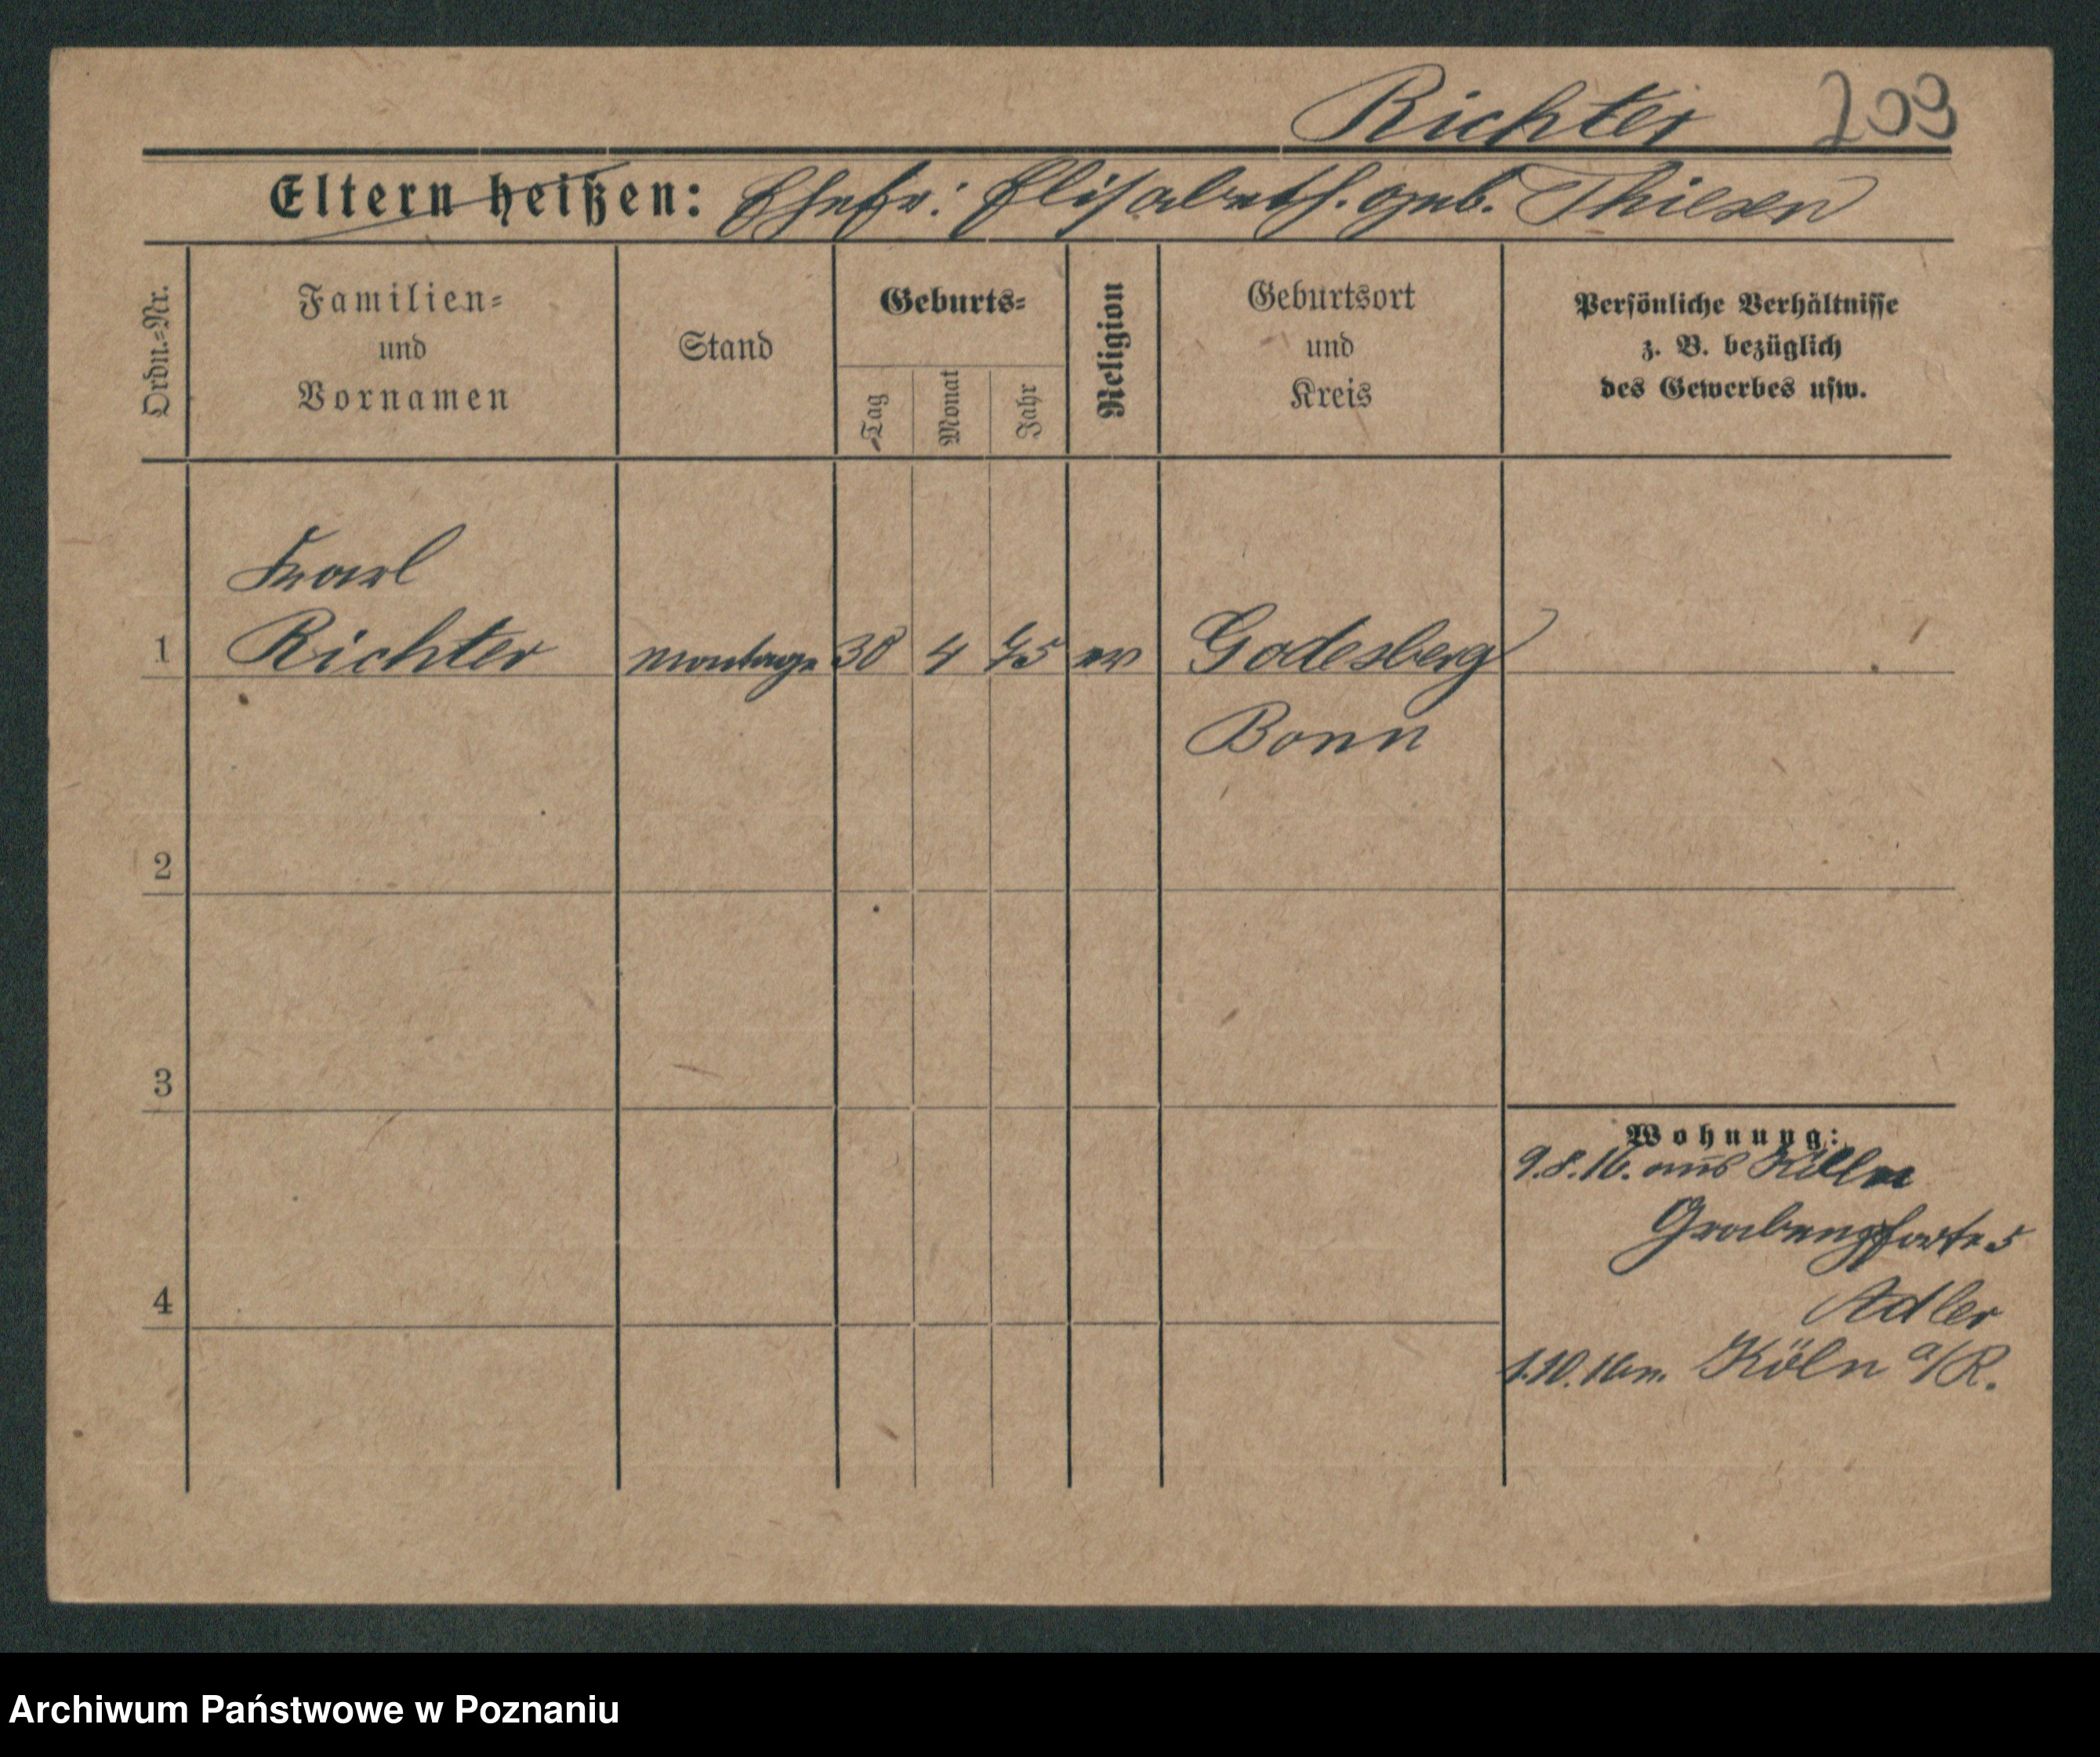 Richter 203
Eltern heißen: Ehefr: Elisabeth. geb. Thissen
Ordn.=Nr.
Familien=
und
Vornamen
Stand
Geburts=
Tag
Monat
Jahr
Religion
Geburtsort
und
Kreis
Persönliche Verhältnisse
z. B. bezüglich
des Gewerbes usw.
Karl
1 Richter 30 4 ev Godesberg
Bonn
2
3
4
Wohnung:
9.8.16. aus Köln
Grabenpforte 5
Adler
1.10.16 n. Köln a/R.
Archiwum Państwowe w Poznaniu